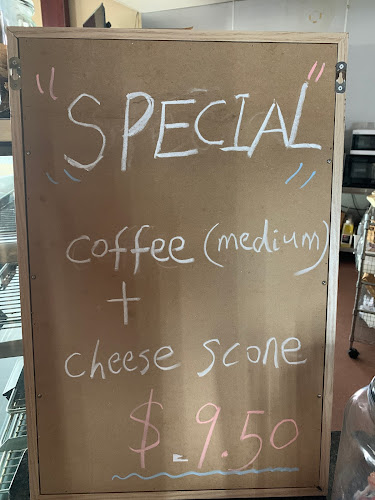 "SPECIAL"
coffee (medium)
+
cheese scone
$ 9.50